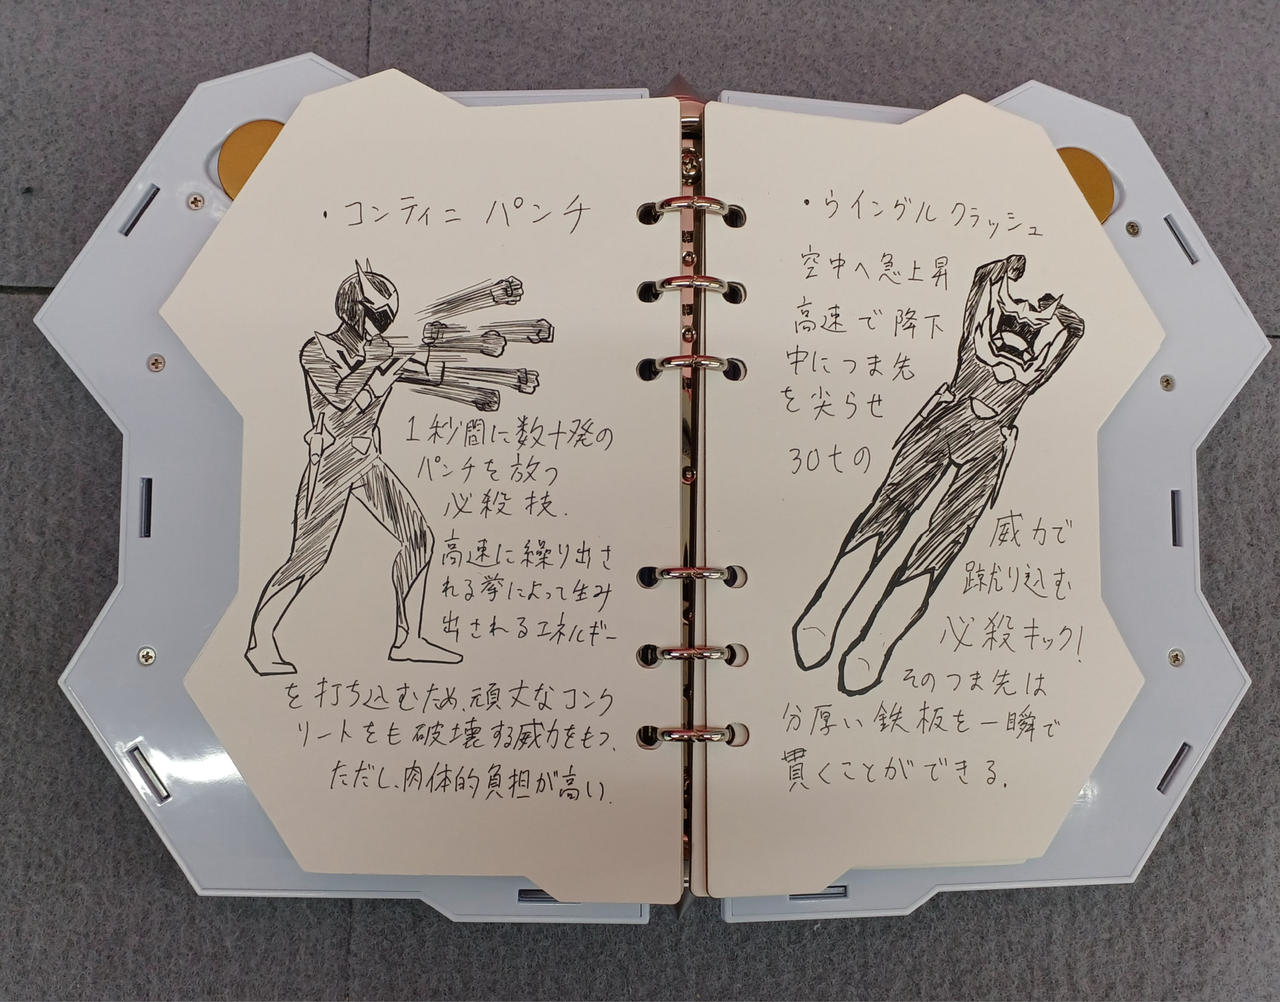 ・コンティニ パンチ
1秒間に数十発の
パンチを放つ
必殺技.
高速に繰り出さ
れる拳によって生み
出されるエネルギー
を打ち込むため、頑丈なコンク
リートをも破壊する威力をもつ、
ただし、肉体的負担が高い.
・ウイングル クラッシュ
空中へ急上昇
高速で降下
中につま先
を尖らせ
30tの
威力で
蹴り込む
必殺キック!
そのつま先は
分厚い鉄板を一瞬で
貫くことができる.